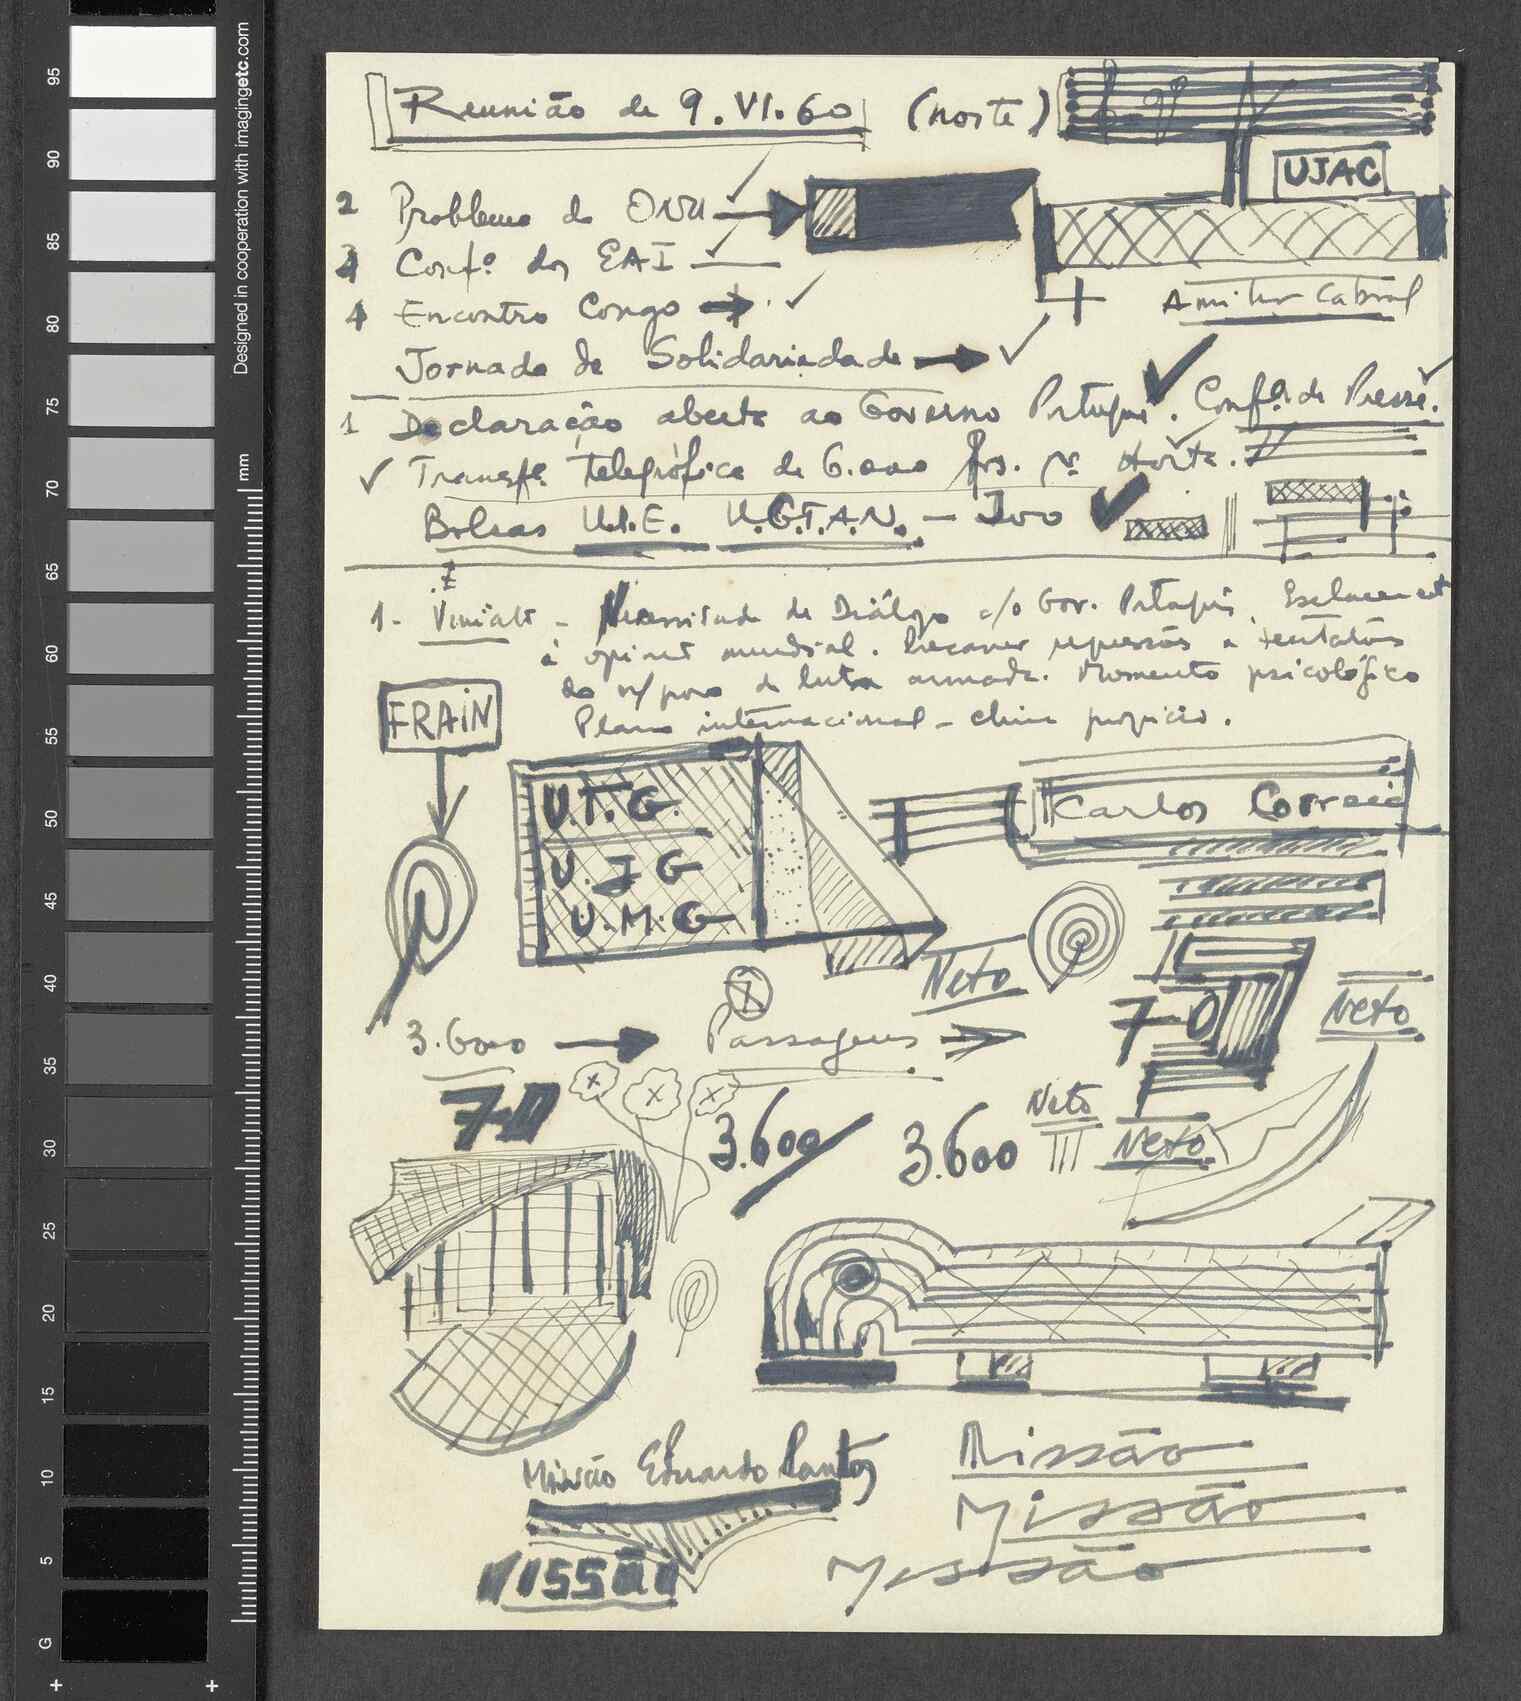 Reunião de 9.VI.60 (noite)
UJAC
2 Problema da ONU
3 Conf.ª dos EAI
4 Encontro Congo
Amilcar Cabral
Jornada de Solidariedade
1 Declaração aberta ao Governo Português. Conf.ª de Presse.
Transfª Telegráfica de 6.000 frs. pª
Bolsas U.I.E. U.G.T.A.N. - 300
1- Viriato - Necessidade de Diálogo c/o Gov. Português.
à opinião mundial. repressões e
do n/povo de luta armada. Momento psicológico
Plano internacional - clima propício.
FRAIN
U.T.G.
U.J.G
U.M.G
Carlos Correia
Neto
7-0
Neto
3.6000 Passagens
7-0
3.600
3.600
Neto
Neto
Missão Eduardo Santos
Missão
Missão
MISSÃO
Missão
95
90
85
80
75
70
65
60
55
50
45
40
35
30
25
20
15
10
5
G
mm
Designed in cooperation with imagingetc.com